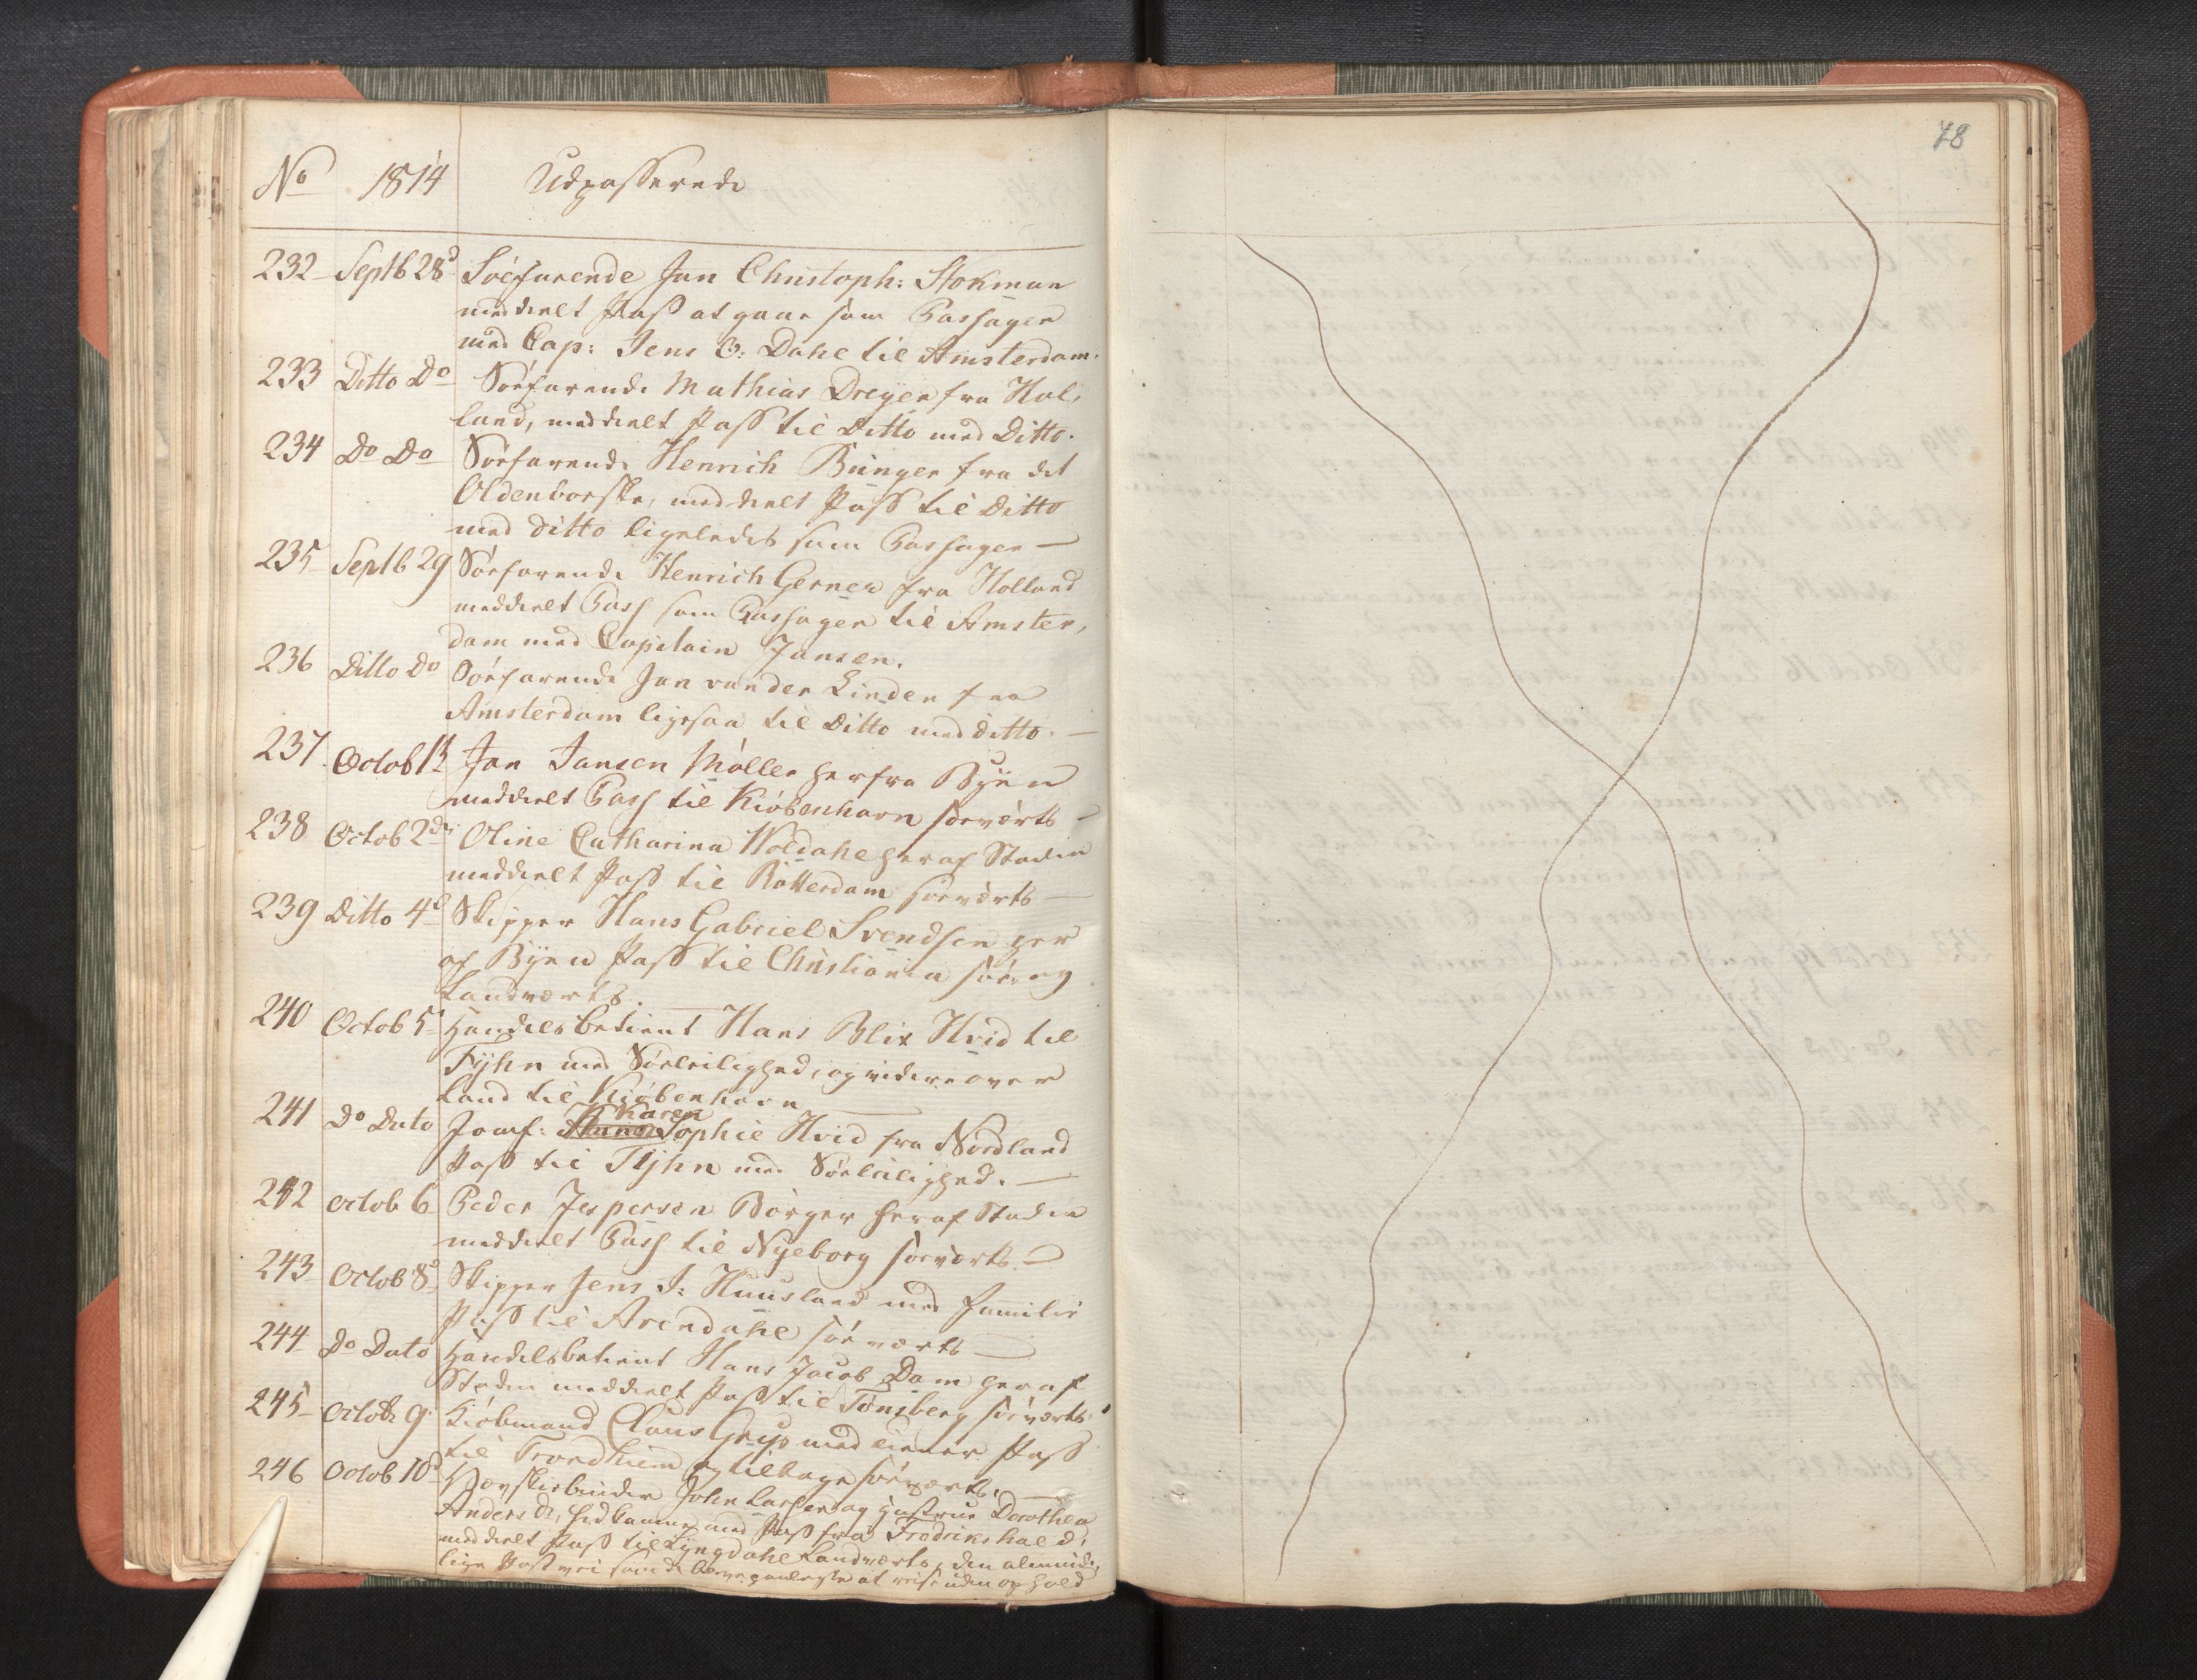 78
No 1814 Udpasserede
232 Septb 28d Søefarende Jan Christoph: Stokman
meddeelt Pass at gaae som Passager
med Cap: Jens O: Dahl til Amsterdam.
233 Ditto Do Søefarende Mathias Dreyer fra Hol,
land, meddeelt Pass til Ditto med Ditto.
234 Do Do Søefarende Henrich Bünger fra det
Oldenborske, meddeelt Pass til Ditto
med ditto ligeledes som Passager —
235 Septb 29 Søefarende Henrich Gerner fra Holland
meddeelt Pass som Passager til Amster,
dam med Capitain Jansen.
236 Ditto Do Søefarende Jan van der Linden fra
Amsterdam ligesaa til Ditto med ditto. —
237 Octob 1t Jan Jansen Møller herfra Byen
meddeelt Pass til Kiøbenhavn søeværts —
238 Octob 2de Oline Catharina Woldahl heraf Staden
meddeelt Pass til Rotterdam søeværts —
239 Ditto 4d Skipper Hans Gabriel Svendsen her
af Byen Pass til Christiania søe og
Landværts. —
240 Octob 5d Handelsbetient Hans Blix Hvid til
Fyhn med Søeleilighed, og videre over
Land til Kiøbenhavn —
241 Do Dato Jomf: Karen Sophie Hvid fra Nordland
Pass til Fyhn med Søeleilighed. —
242 Octob 6 Peder Jespersen Borger heraf Staden
meddeelt Pass til Nyeborg søeværts. —
243 Octob 8d Skipper Jens J: Huusland med Familie
Pass til Arendahl søeværts —
244 Do Dato Handelsbetient Hans Jacob Dam heraf
Staden meddeelt Pass til Tønsberg søeværts.
245 Octob 9 Kiøbmand Claus Grip med tiener Pass
til Trondhiem og tilbage søeværts. —
246 Octob 10d John Larsen og Hustrue Dorothea
Andersd, hidkommen med Pass fra Fredrikshald,
meddeelt Pass til Lyngdahl Landværts, den alminde,
lige Postvei som de bleve paalagte at reise uden ophold